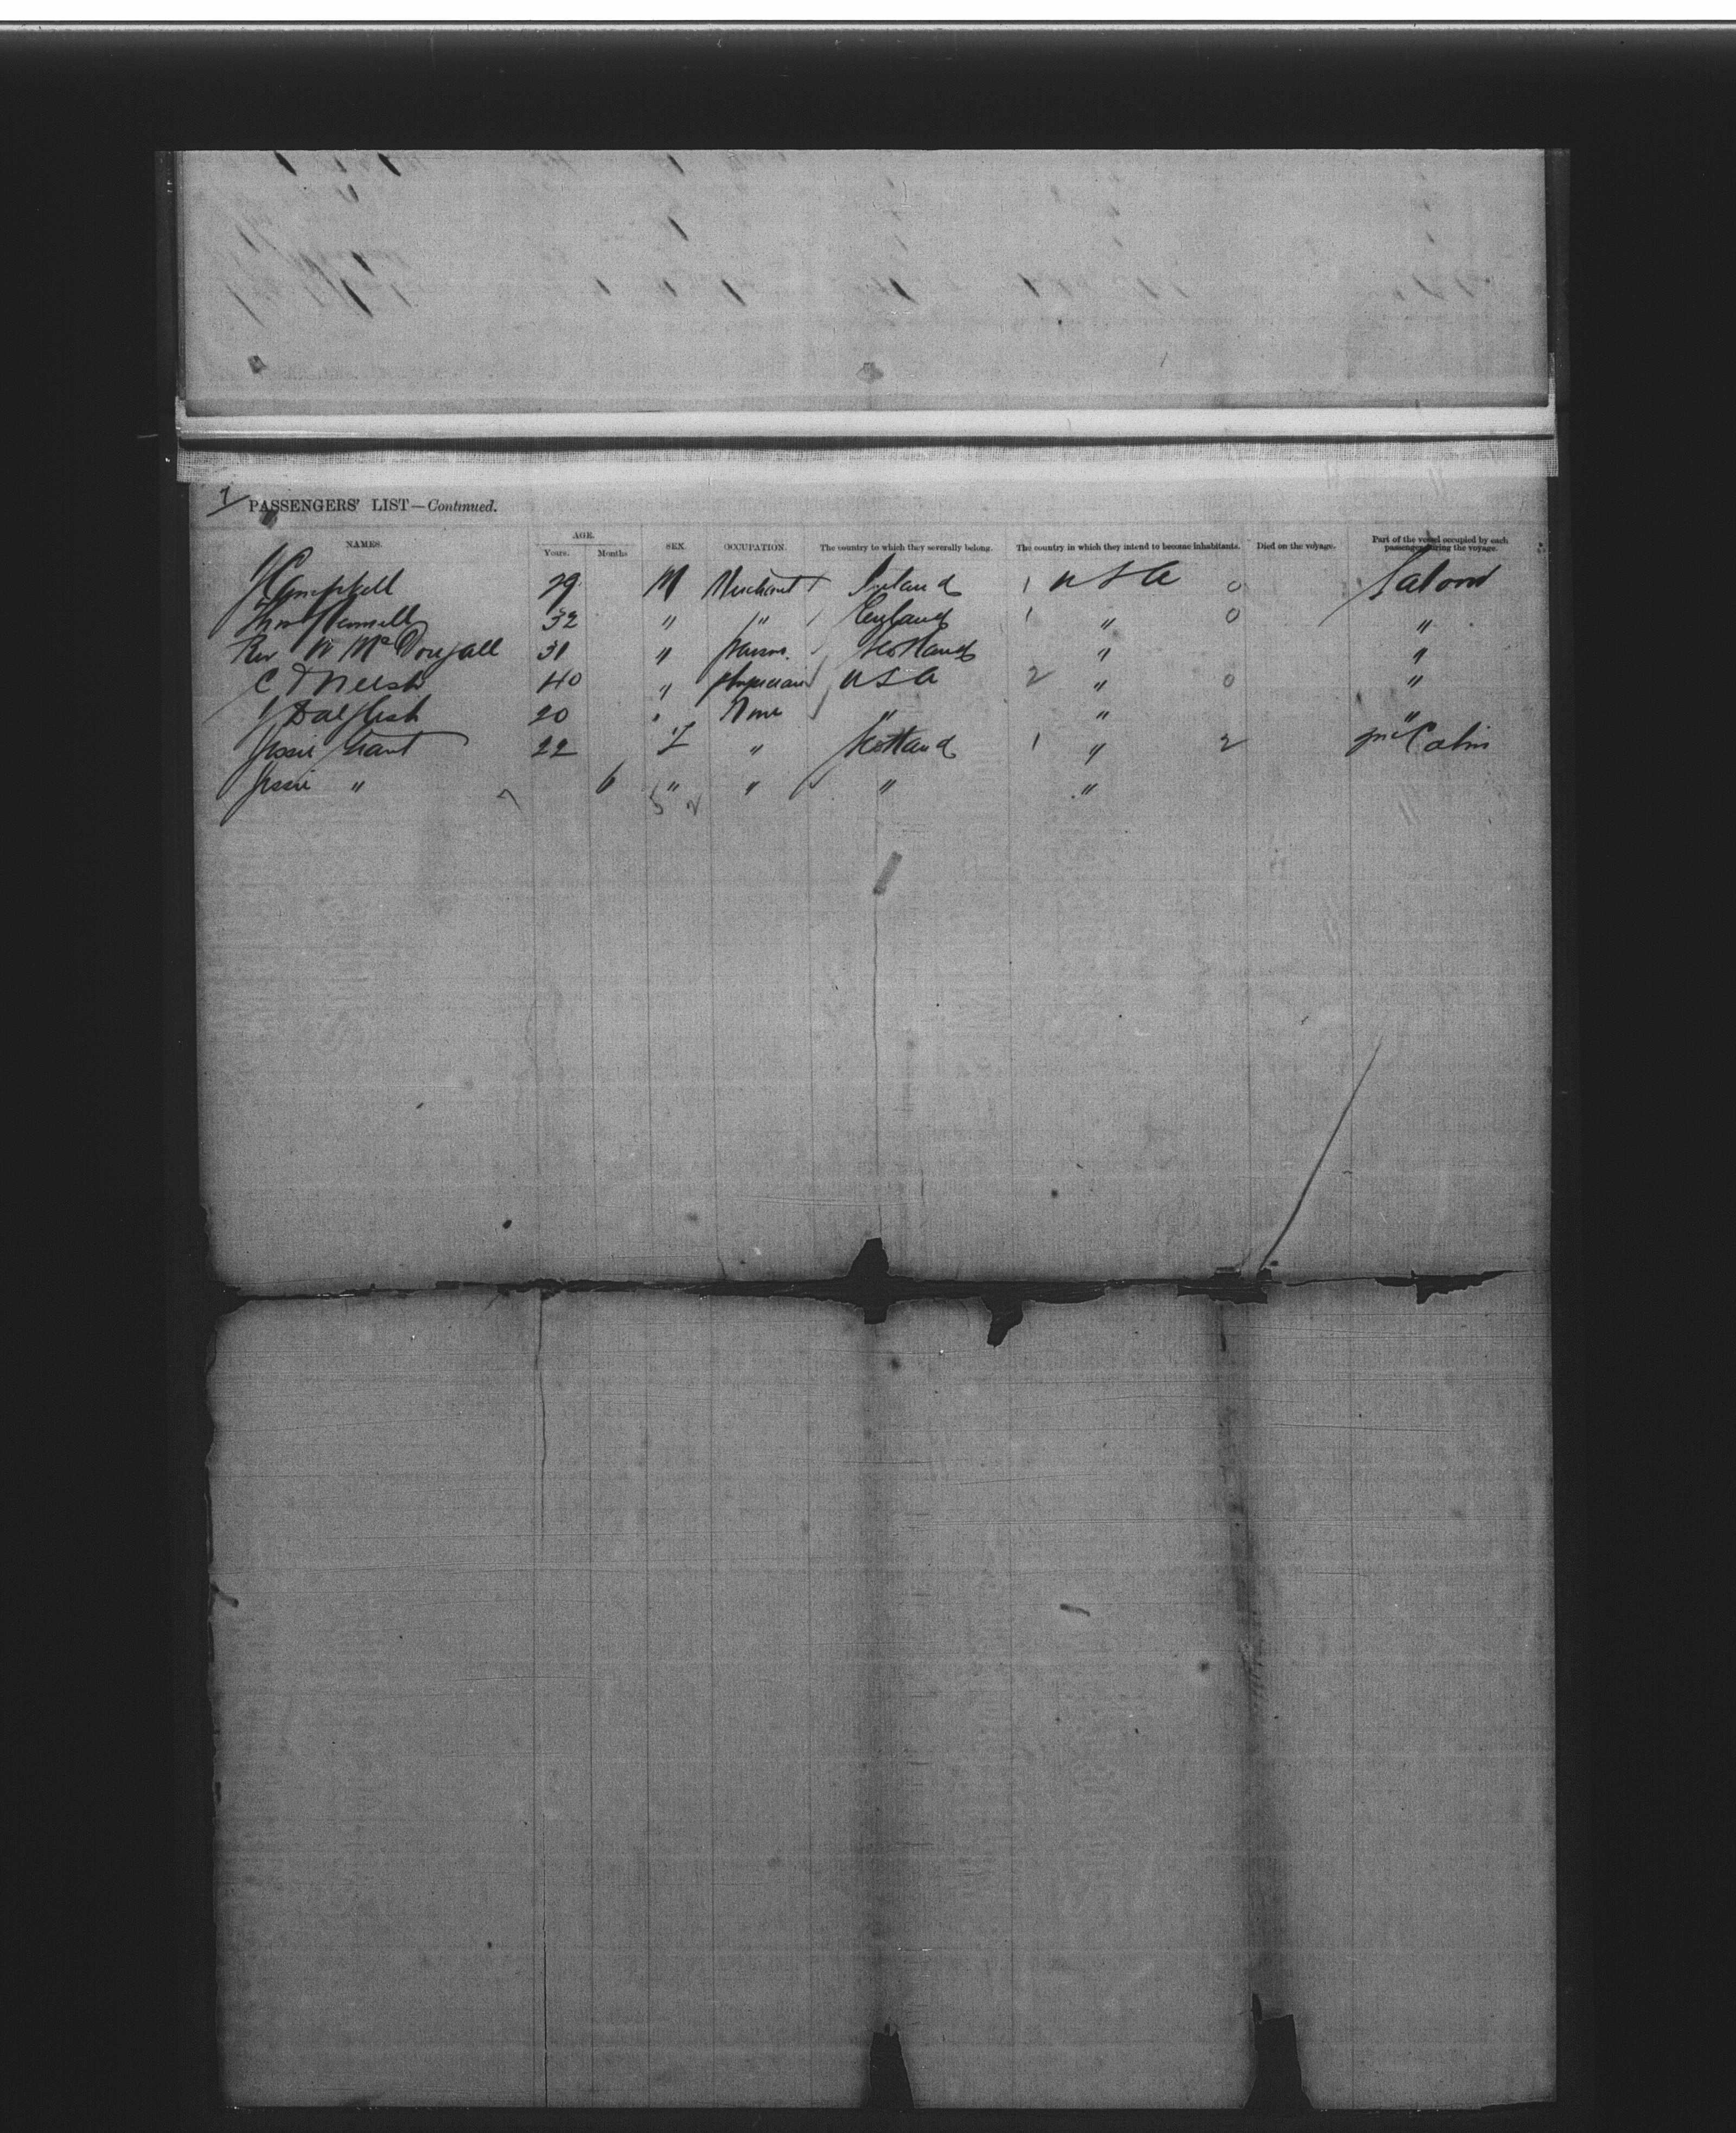 7 PASSENGERS' LIST—Continued.
NAMES. AGE. Years. Months SEX. OCCUPATION. The country to which they severally belong. The country in which they intend to become inhabitants. Died on the voyage. Part of the vessel occupied by each passenger during the voyage.
J Campbell 29 M Merchant Ireland 1 USA 0 Saloon
32 " " England 1 " 0 "
Rev W McDougall 31 " Scotland " "
C 40 " physician USA 2 " 0 "
J Dalglish 20 " None " " "
Jessie Grant 22 F " Scotland 1 " 2 Cabin
Jessie " 6 " " " "
7 5 2